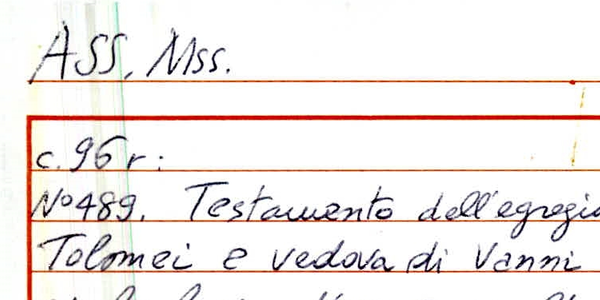 ASS. Mss.
c. 96 r:
N° 489. Testamento dell'egregia
Tolomei e vedova di Vanni